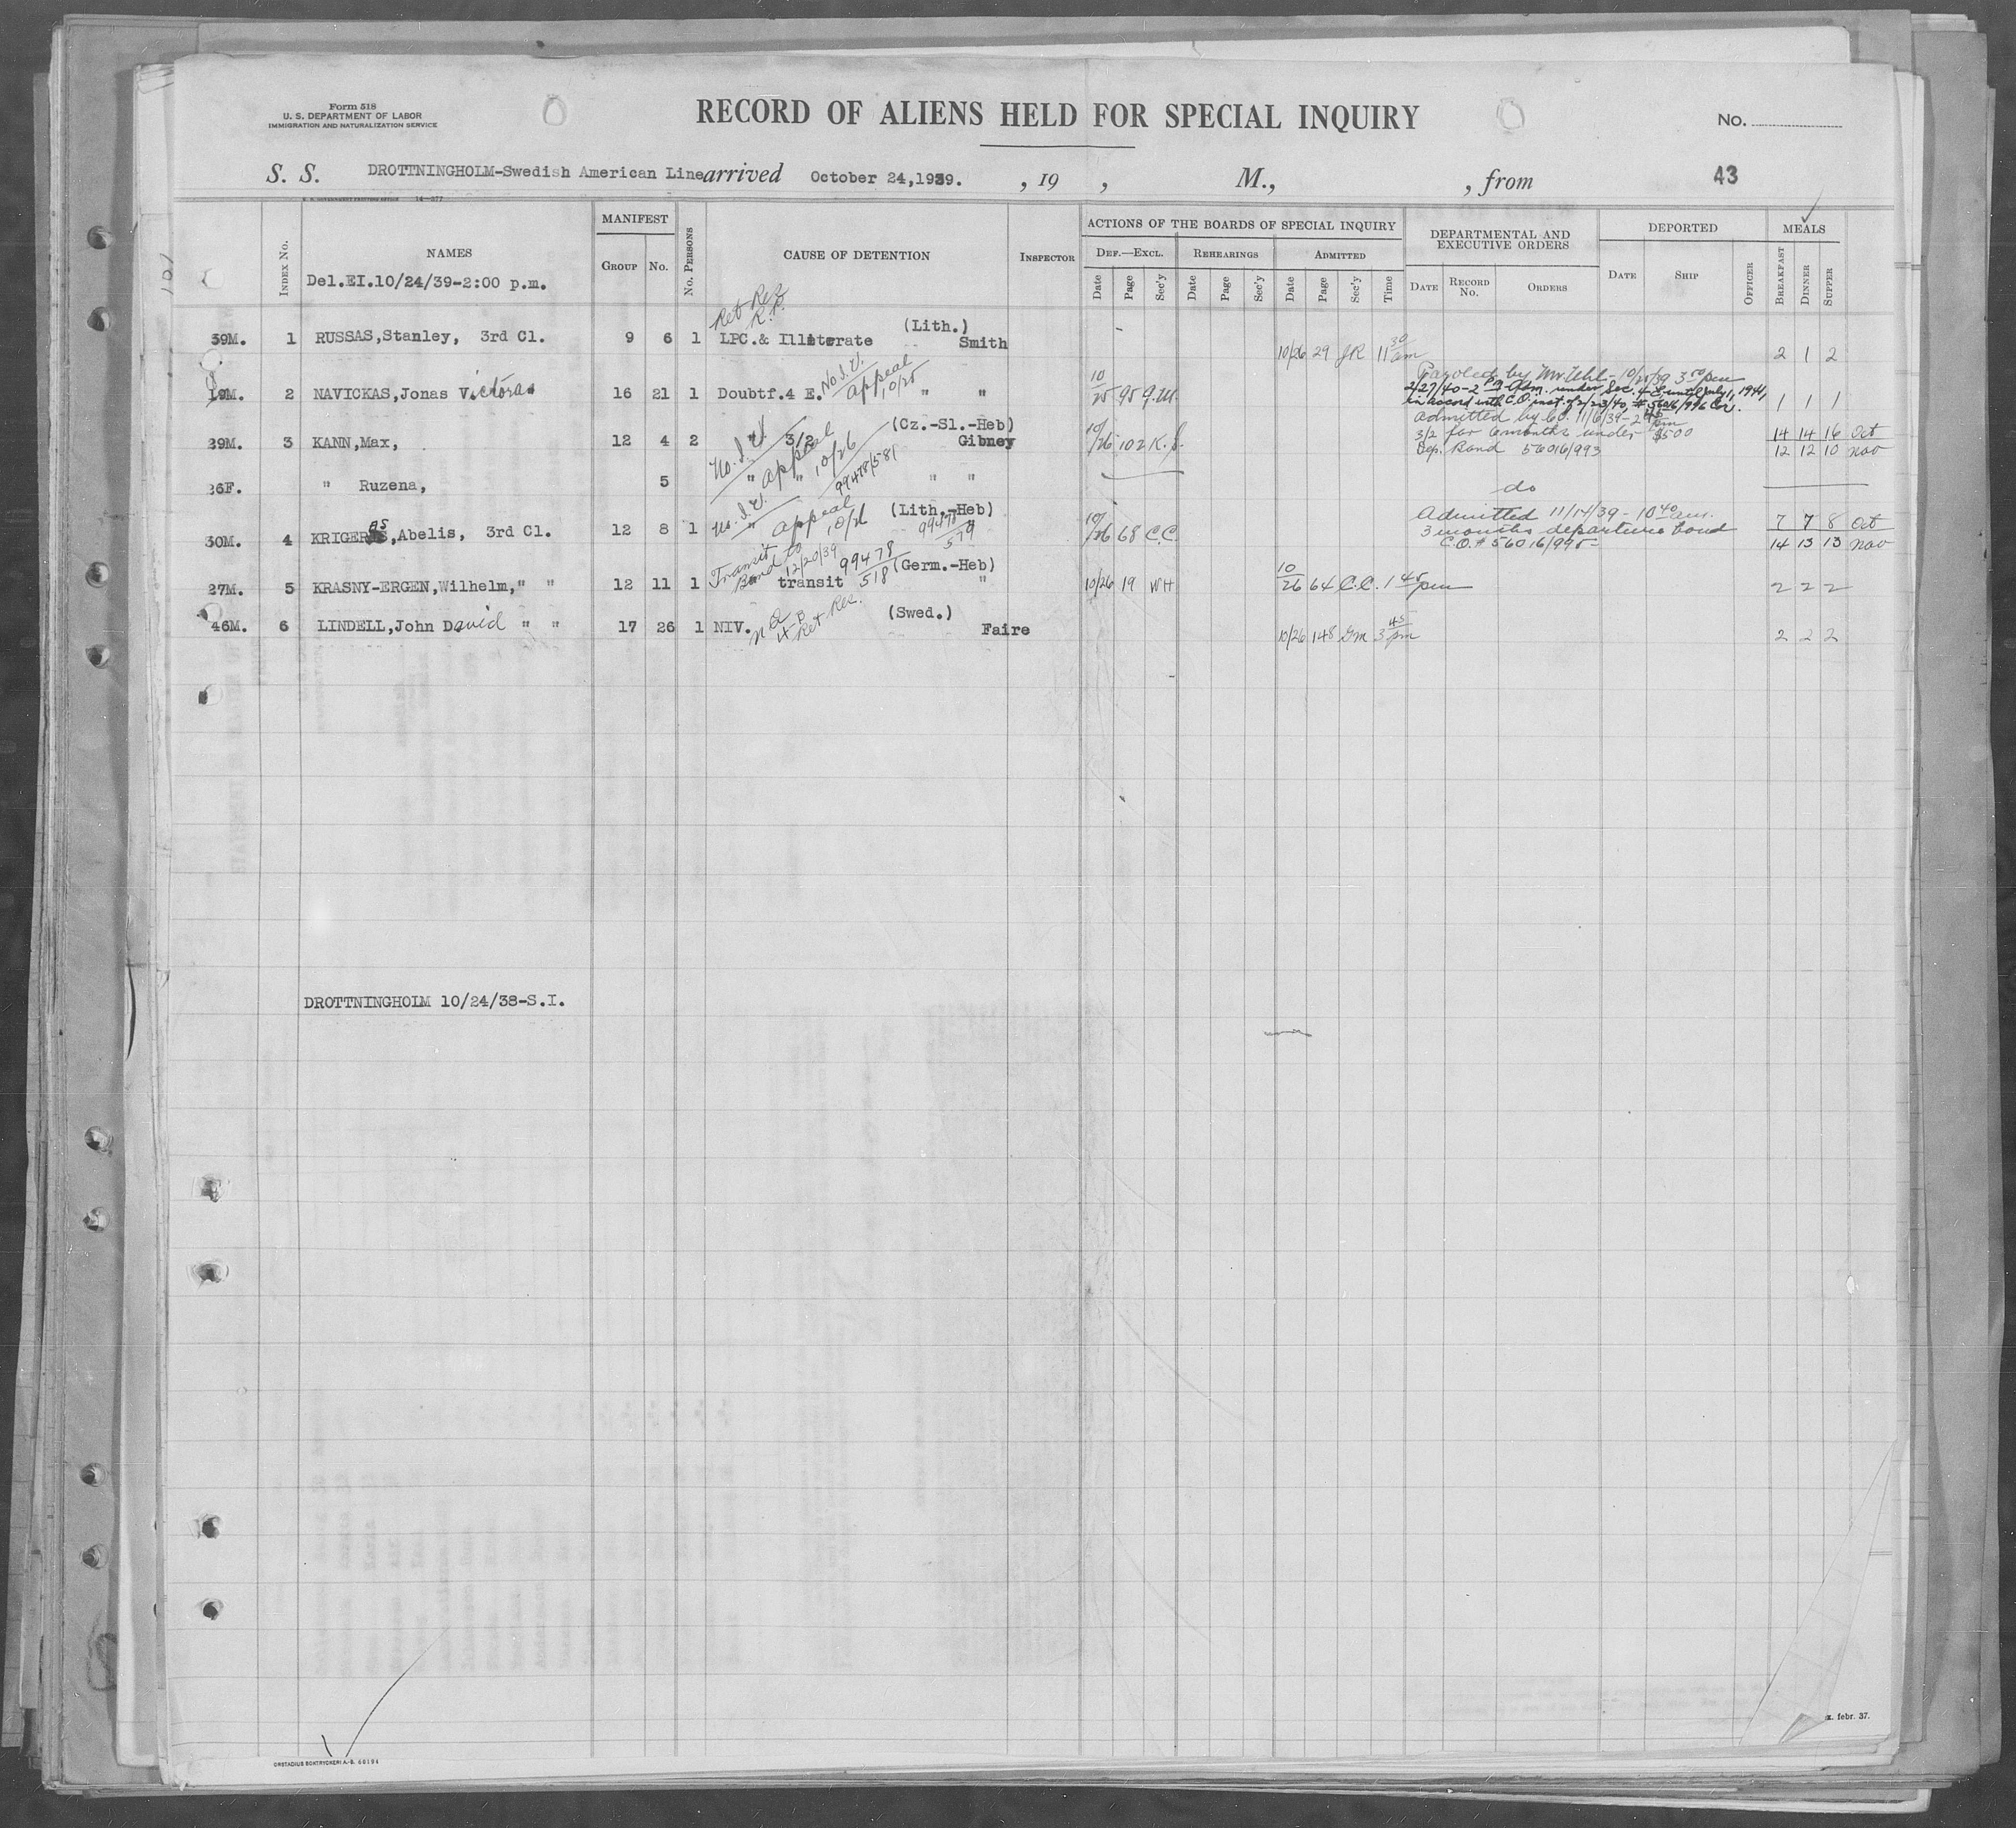 Form 518
U. S. DEPARTMENT OF LABOR
IMMIGRATION AND NATURALIZATION SERVICE
RECORD OF ALIENS HELD FOR SPECIAL INQUIRY
No.
S. S. DROTTNINGHOLM-Swedish American Line arrived October 24,1939. , 19 , M., , from 43
U. S. GOVERNMENT PRINTING OFFICE 14—377
INDEX No. NAMES MANIFEST GROUP No. No. PERSONS CAUSE OF DETENTION INSPECTOR
ACTIONS OF THE BOARDS OF SPECIAL INQUIRY
DEF.—EXCL. Date Page Sec'y REHEARINGS Date Page Sec'y ADMITTED Date Page Sec'y Time
DEPARTMENTAL AND EXECUTIVE ORDERS DATE RECORD No. ORDERS
DEPORTED DATE SHIP OFFICER
MEALS BREAKFAST DINNER SUPPER
Del.EI.10/24/39-2:00 p.m.
Ret Res
R.P.
39M. 1 RUSSAS,Stanley, 3rd Cl. 9 6 1 LPC.& Illiterate (Lith.) Smith 10/26 29 JR 11 30 am 2 1 2
19M. 2 NAVICKAS,Jonas Victoras 16 21 1 Doubtf.4 E. No I.V. Appeal 10/25 " " 10/25 95 1 1 1
Paroled by Mr. Uhl - 10/25/39 3 50 pm
2/27/40-2 pm Adm. under Sec. 4-E until July 1, 1941,
in accord with C.O. inst. of 2/23/40, # 56016/996
39M. 3 KANN,Max, 12 4 2 No I.V. " 3/2 (Cz.-Sl.-Heb) Gibney 10/26 102 K.
Admitted by C.O. 11/6/39-2 45 pm
3/2 for 6 months under $500
Dep. Bond 56016/993
14 14 16 Oct
12 12 10 Nov
36F. " Ruzena, 5 " Appeal " 10/26 99478/581 " " do
30M. 4 KRIGERAS,Abelis, 3rd Cl. 12 8 1 No I.V. " Appeal 10/26 (Lith.-Heb) 99478/579 " 10/26 68 C.C.
Admitted 11/14/39 - 10 40 am.
3 months departure bond
C.O. # 56016/995-
7 7 8 Oct
14 13 13 Nov
27M. 5 KRASNY-ERGEN,Wilhelm," " 12 11 1 Transit Bond to 12/20/39 transit 99478/518 (Germ.-Heb) " 10/26 19 WH 10/26 64 C.C. 1 45 pm 2 2 2
46M. 6 LINDELL,John David " " 17 26 1 NIV. 4-B Ret Res. (Swed.) Faire 10/26 148 Gm 3 45 pm 2 2 2
DROTTNINGHOLM 10/24/38-S.I.
x. febr. 37.
ORSTADIUS BOKTRYCKERI A.-B. 60194